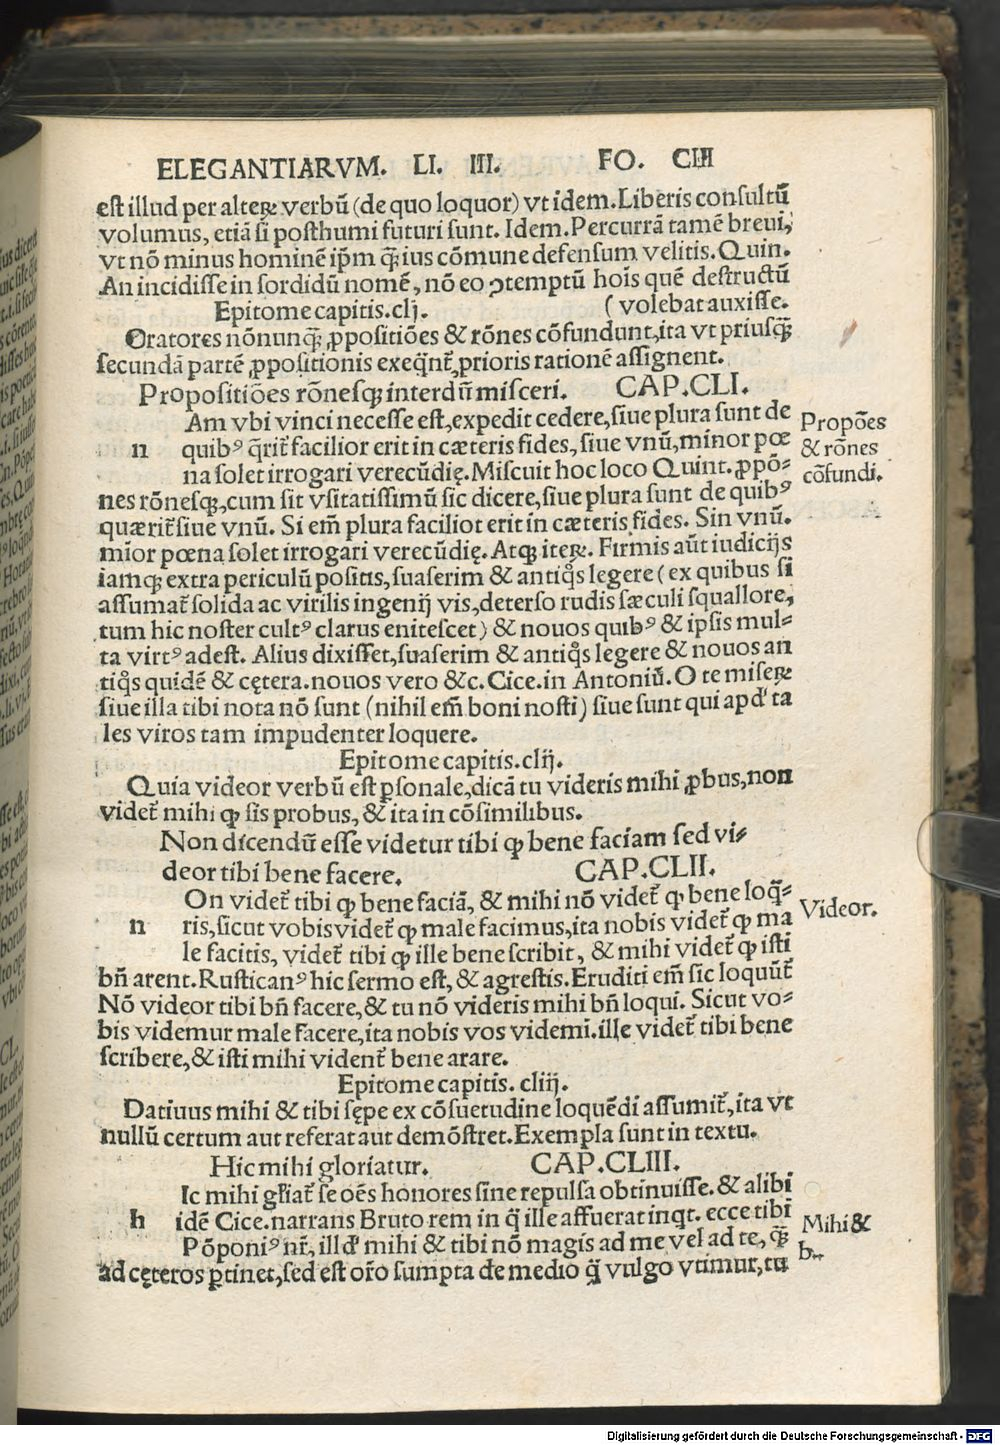 ELEGANTIARVM. LI. III. FO. CIII
est illud per alteꝝ verbū (de quo loquor) vt idem. Liberis consultū
volumus, etiā si posthumi futuri sunt. Idem. Percurrā tamē breui,
vt nō minus hominē ip̄m q̄ȝ ius cōmune defensum velitis. Quin.
An incidisse in sordidū nomē, nō eo ↄtemptū hoīs quē destructū
Epitome capitis. clj. ( volebat auxisse.
Oratores nōnunq̄ȝ ꝓpositiōes & rōnes cōfundunt, ita vt priusq̄ȝ
secundā partē ꝓpositionis exeq̄nt᷑, prioris rationē assignent.
Propositiōes rōnesqȝ interdū misceri. CAP. CLI.
Am vbi vinci necesse est, expedit cedere, siue plura sunt de
n quibꝰ q̄rit᷑ facilior erit in cæteris fides, siue vnū, minor pœ
na solet irrogari verecūdię. Miscuit hoc loco Quint. ꝓpō⸗
nes rōnesqȝ, cum sit vsitatissimū sic dicere, siue plura sunt de quibꝰ
quærit᷑ siue vnū. Si em̄ plura faciliot erit in cæteris fides. Sin vnū.
mīor pœna solet irrogari verecūdię. Atqȝ iteꝝ. Firmis aūt iudicijs
iamqȝ extra periculū positis, suaserim & antiq̊s legere ( ex quibus si
assumat᷑ solida ac virilis ingenij vis, deterso rudis sæculi squallore,
tum hic noster cultꝰ clarus enitescet) & nouos quibꝰ & ipsis mul⸗
ta virtꝰ adest. Alius dixisset, suaserim & antiq̊s legere & nouos an
tiq̊s quidē & cętera. nouos vero &c. Cice. in Antoniū. O te miseꝝ
siue illa tibi nota nō sunt (nihil em̄ boni nosti) siue sunt qui apd' ta
les viros tam impudenter loquere.
Epitome capitis. clij.
Quia videor verbū est ꝑsonale, dicā tu videris mihi ꝓbus, non
videt᷑ mihi ꝙ sis probus, & ita in cōsimilibus.
Non dicendū esse videtur tibi ꝙ bene faciam sed vi⸗
deor tibi bene facere. CAP. CLII.
On videt᷑ tibi ꝙ bene faciā, & mihi nō videt᷑ ꝙ bene loq̄⸗
n ris, sicut vobis videt᷑ ꝙ male facimus, ita nobis videt᷑ ꝙ ma
le facitis, videt᷑ tibi ꝙ ille bene scribit, & mihi videt᷑ ꝙ isti
bn̄ arent. Rusticanꝰ hic sermo est, & agrestis. Eruditi em̄ sic loquūt᷑
Nō videor tibi bn̄ facere, & tu nō videris mihi bn̄ loqui. Sicut vo⸗
bis videmur male facere, ita nobis vos videmi. ille videt᷑ tibi bene
scribere, & isti mihi vident᷑ bene arare.
Epitome capitis. cliij.
Datiuus mihi & tibi sępe ex cōsuetudine loquēdi assumit᷑, ita vt
nullū certum aut referat aut demōstret. Exempla sunt in textu.
Hic mihi gloriatur. CAP. CLIII.
Ic mihi gl̄iat᷑ se oēs honores sine repulsa obtinuisse. & alibi
h idē Cice. narrans Bruto rem in q̄ ille affuerat inqt. ecce tibi
Pōponiꝰ nr̄, illd' mihi & tibi nō magis ad me vel ad te, q̄ȝ
ad cęteros ꝑtinet, sed est or̄o sumpta de medio q̄ vulgo vtimur, tu
Propōes
& rōnes
cōfundi.
Videor.
Mihi &
Digitalisierung gefördert durch die Deutsche Forschungsgemeinschaft - DFG